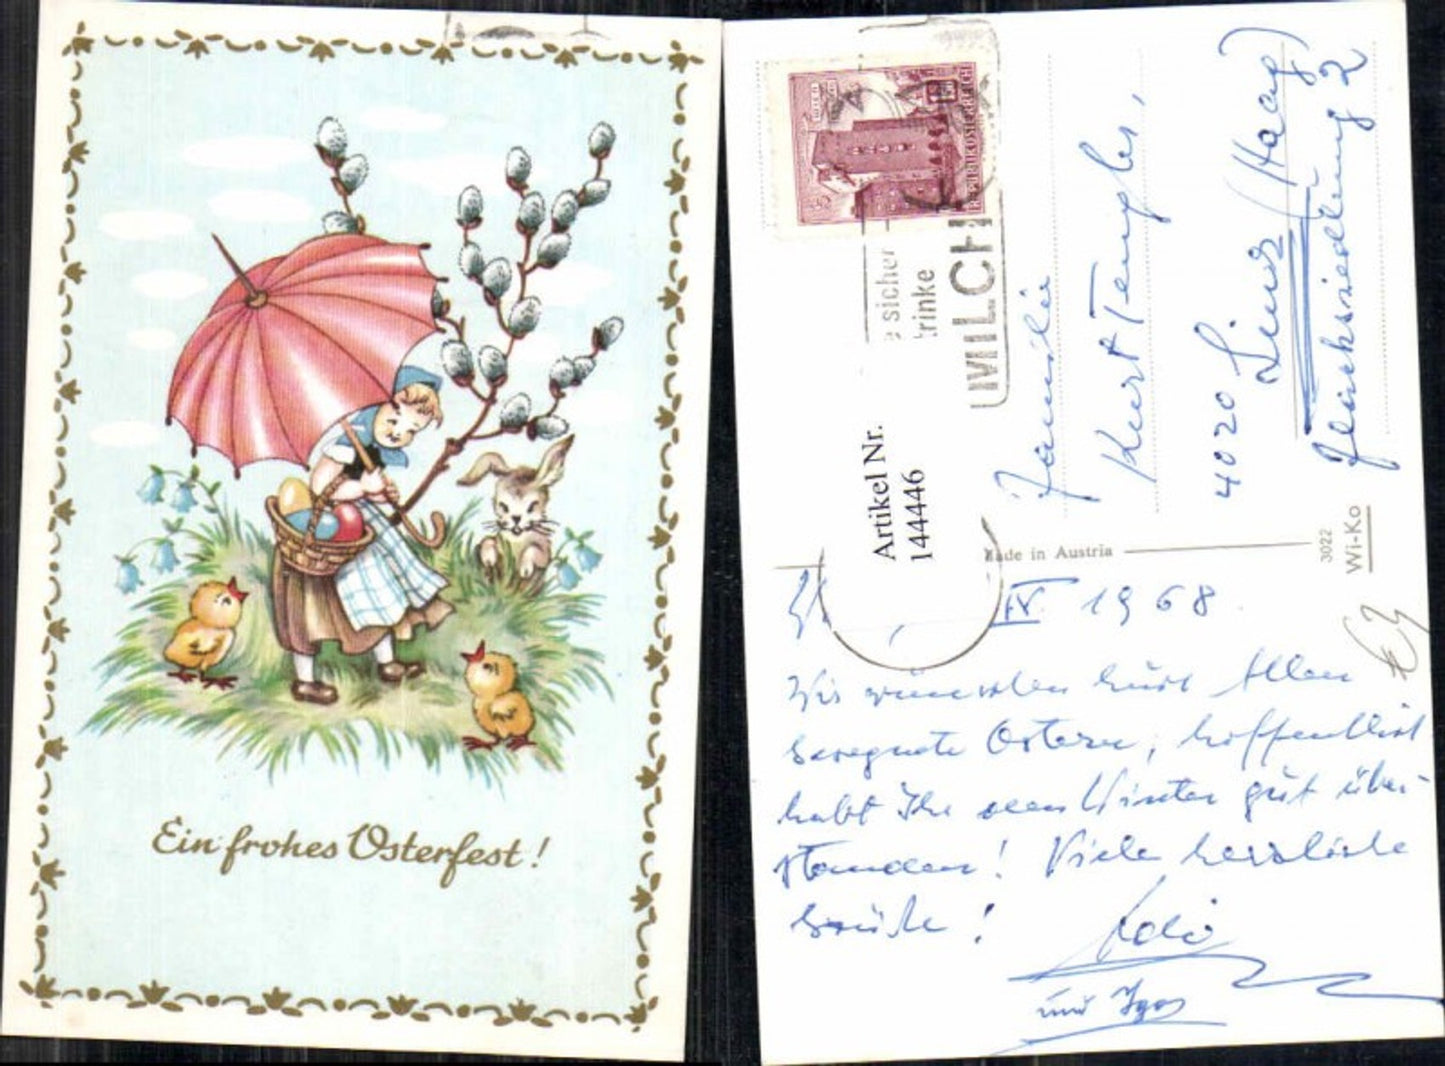 Ein frohes Osterfest!
REPUBLIK ÖSTERREICH
sicher
trinke
MILCH
Artikel Nr.
144446
Familie
Kurt Templer,
4020 Linz (Haag)
2
Made in Austria
3022
Wi-Ko
IV. 1968.
Wir wünschen Euch Allen
gesegnete Ostern, hoffentlich
habt Ihr den Winter gut über-
standen! Viele herzliche
Grüße!
und